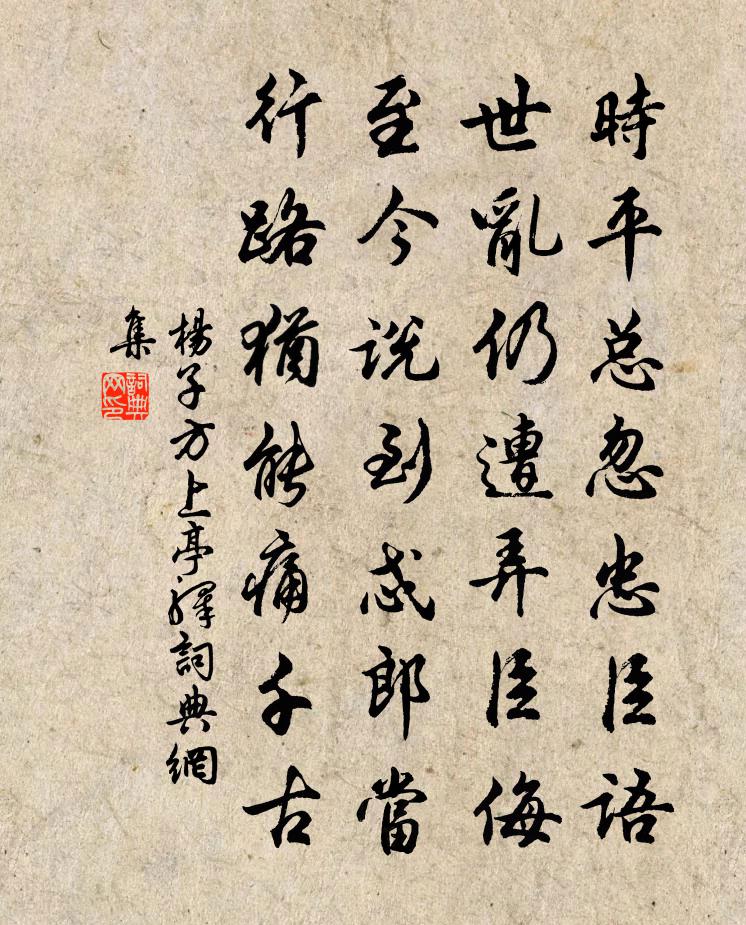 時平总忽忠臣語
世亂仍遭弄臣侮
至今說到忒郎當
行路猶能痛千古
楊子方上亭驛詞典網
集
詞典
网印